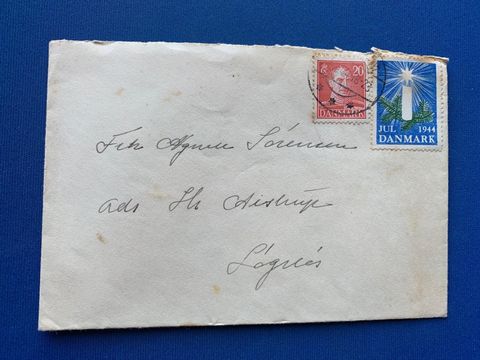 20
DANMARK
JUL 1944
DANMARK
Frk Agnes Sørensen
ads Hr Aistrup
Løgnæs